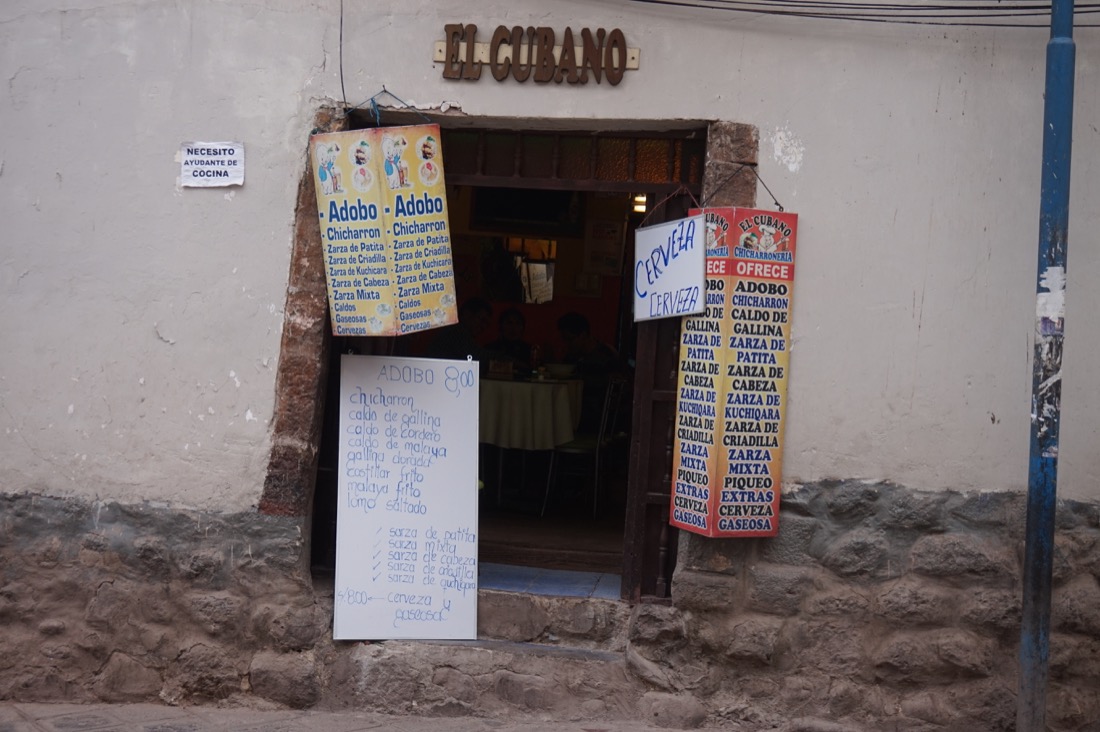 EL CUBANO
NECESITO
AYUDANTE DE
COCINA
- Adobo
- Chicharron
- Zarza de Patita
- Zarza de Criadilla
- Zarza de Kuchicara
- Zarza de Cabeza
- Zarza Mixta
- Caldos
- Gaseosas
- Cervezas
- Adobo
- Chicharron
- Zarza de Patita
- Zarza de Criadilla
- Zarza de Kuchicara
- Zarza de Cabeza
- Zarza Mixta
- Caldos
- Gaseosas
- Cervezas
ADOBO 8,00
chicharron
caldo de gallina
caldo de cordero
caldo de malaya
gallina dorada
costillar frito
malaya frito
lomo saltado
✓ sarza de patita
✓ sarza mixta
✓ sarza de cabeza
✓ sarza de criadilla
✓ sarza de
S/8.00 — cerveza y
gaseosa
CERVEZA
CERVEZA
CUBANO
ECE
OBO
ARRON
CALDO DE
GALLINA
ZARZA DE
PATITA
ZARZA DE
CABEZA
ZARZA DE
KUCHIQARA
ZARZA DE
CRIADILLA
ZARZA
MIXTA
PIQUEO
EXTRAS
CERVEZA
GASEOSA
EL CUBANO
CHICHARRONERÍA
OFRECE
ADOBO
CHICHARRON
CALDO DE
GALLINA
ZARZA DE
PATITA
ZARZA DE
CABEZA
ZARZA DE
KUCHIQARA
ZARZA DE
CRIADILLA
ZARZA
MIXTA
PIQUEO
EXTRAS
CERVEZA
GASEOSA